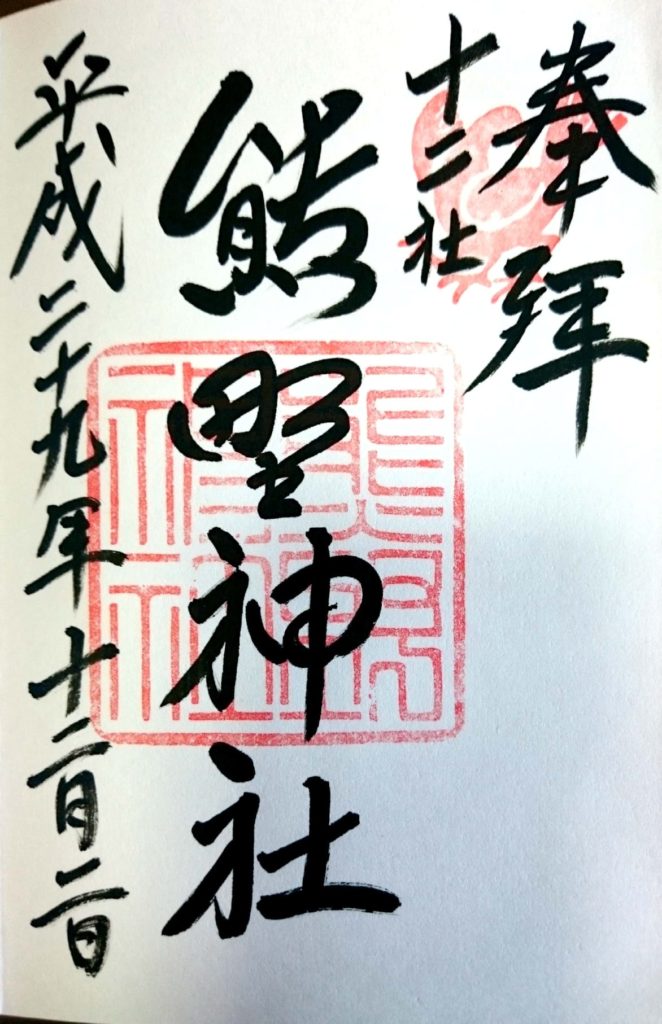 奉拝
十二社
熊野神社
平成二十九年十二月二日